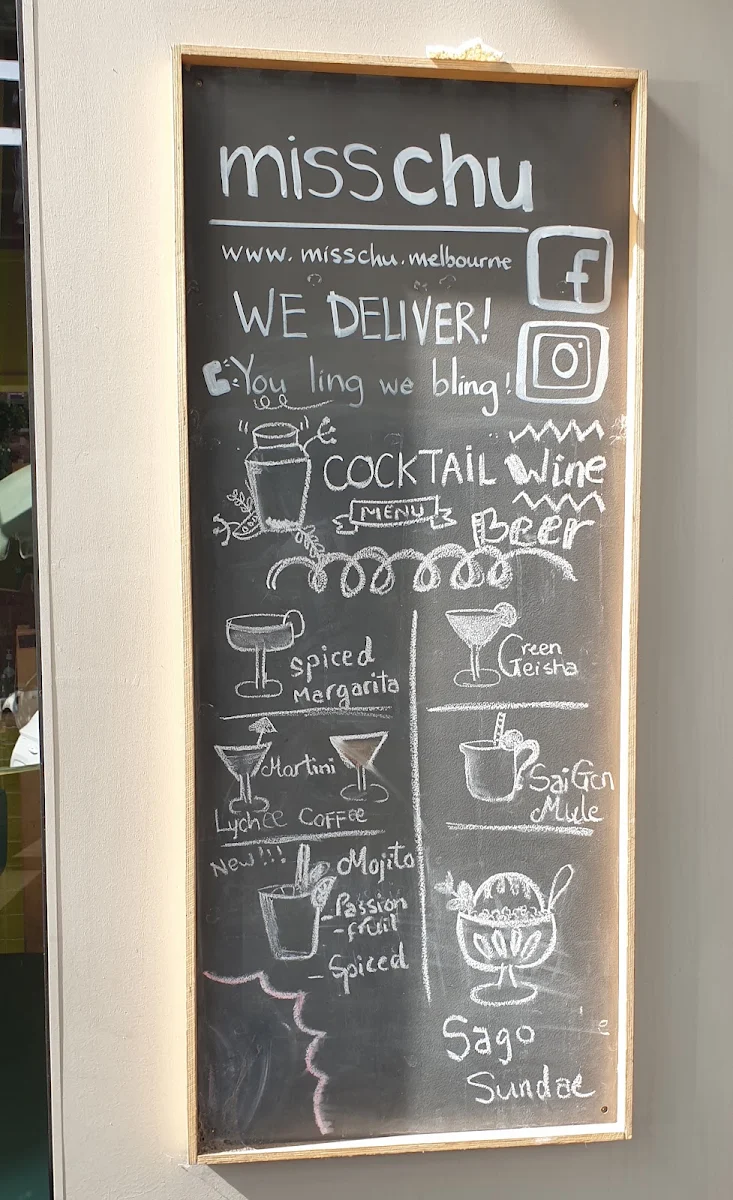 misschu
www.misschu.melbourne
f
WE DELIVER!
You ling we bling!
COCKTAIL Wine
MENU Beer
Spiced
Margarita
Green
Geisha
Martini
Lychee COFFEE
SaiGon
Mule
New!!! Mojito
-Passion
-fruit
- Spiced
Sago
Sundae